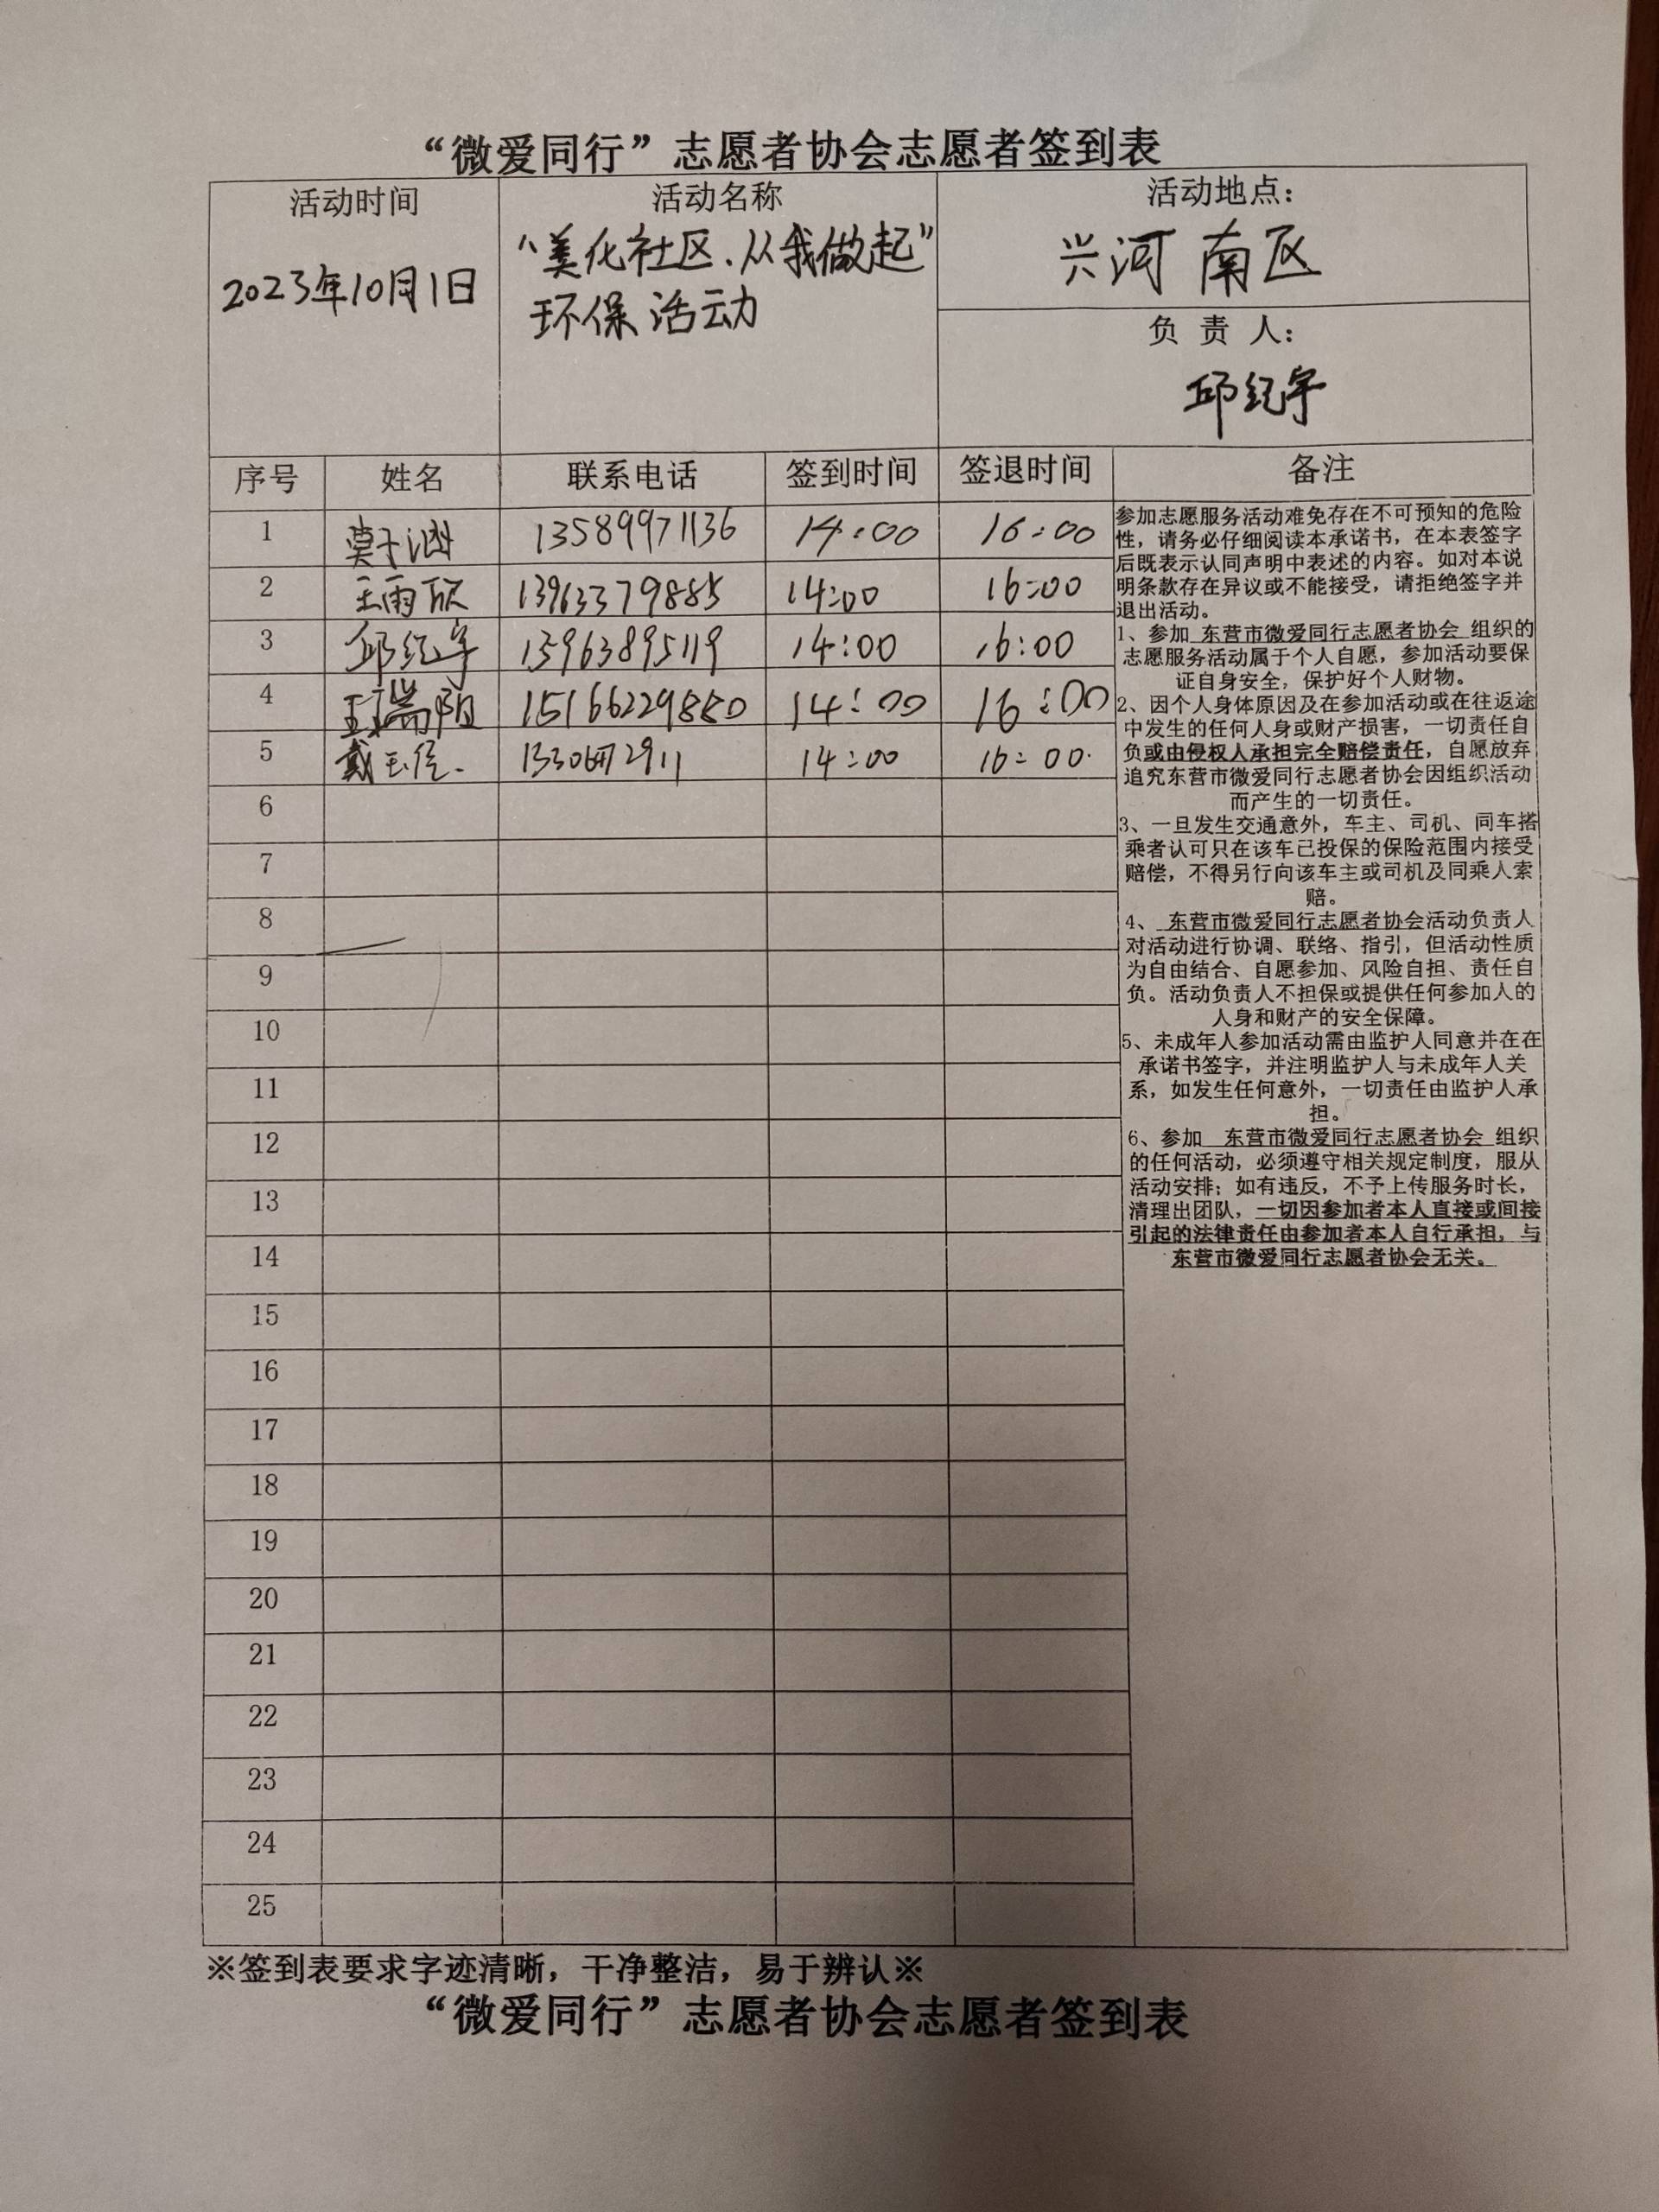 “微爱同行”志愿者协会志愿者签到表
活动时间 活动名称 活动地点：
2023年10月1日 “美化社区.从我做起” 兴河南区
环保活动
负 责 人：
邱纪宇
序号 姓名 联系电话 签到时间 签退时间 备注
1 莫子涵 13589971136 14:00 16:00
2 王雨欣 13963379885 14:00 16:00
3 邱纪宇 13963895119 14:00 16:00
4 王瑞阳 15166229880 14:00 16:00
5 戴玉 14:00 16:00
6
7
8
9
10
11
12
13
14
15
16
17
18
19
20
21
22
23
24
25
参加志愿服务活动难免存在不可预知的危险
性，请务必仔细阅读本承诺书，在本表签字
后既表示认同声明中表述的内容。如对本说
明条款存在异议或不能接受，请拒绝签字并
退出活动。
1、参加 东营市微爱同行志愿者协会 组织的
志愿服务活动属于个人自愿，参加活动要保
证自身安全，保护好个人财物。
2、因个人身体原因及在参加活动或在往返途
中发生的任何人身或财产损害，一切责任自
负或由侵权人承担完全赔偿责任，自愿放弃
追究东营市微爱同行志愿者协会因组织活动
而产生的一切责任。
3、一旦发生交通意外，车主、司机、同车搭
乘者认可只在该车已投保的保险范围内接受
赔偿，不得另行向该车主或司机及同乘人索
赔。
4、 东营市微爱同行志愿者协会活动负责人
对活动进行协调、联络、指引，但活动性质
为自由结合、自愿参加、风险自担、责任自
负。活动负责人不担保或提供任何参加人的
人身和财产的安全保障。
5、未成年人参加活动需由监护人同意并在在
承诺书签字，并注明监护人与未成年人关
系，如发生任何意外，一切责任由监护人承
担。
6、参加 东营市微爱同行志愿者协会 组织
的任何活动，必须遵守相关规定制度，服从
活动安排；如有违反，不予上传服务时长，
清理出团队，一切因参加者本人直接或间接
引起的法律责任由参加者本人自行承担，与
东营市微爱同行志愿者协会无关。
※签到表要求字迹清晰，干净整洁，易于辨认※
“微爱同行”志愿者协会志愿者签到表